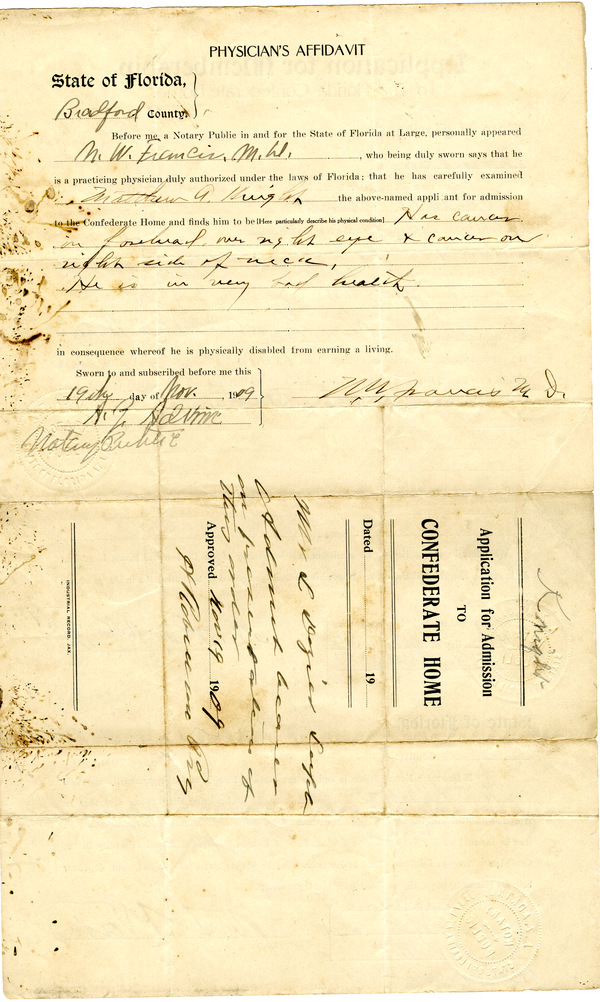 PHYSICIAN'S AFFIDAVIT
State of Florida,
Bradford County.
Before me, a Notary Public in and for the State of Florida at Large, personally appeared
N. W. Francis, M.D. , who being duly sworn says that he
is a practicing physician duly authorized under the laws of Florida; that he has carefully examined
Matthew A. Knight the above-named applicant for admission
to the Confederate Home and finds him to be [Here particularly describe his physical condition] Has cancer
on forehead over right eye & cancer on
right side of neck,
He is in very bad health
in consequence whereof he is physically disabled from earning a living.
Sworn to and subscribed before me this
19th day of Nov. 1909
N. W. Francis M. D.
Notary Public
Knight
Application for Admission
TO
CONFEDERATE HOME
Dated 19
Mr Supt
Admit bearer
on presentation of
this order
Approved Nov 19 1909
INDUSTRIAL RECORD, JAX.